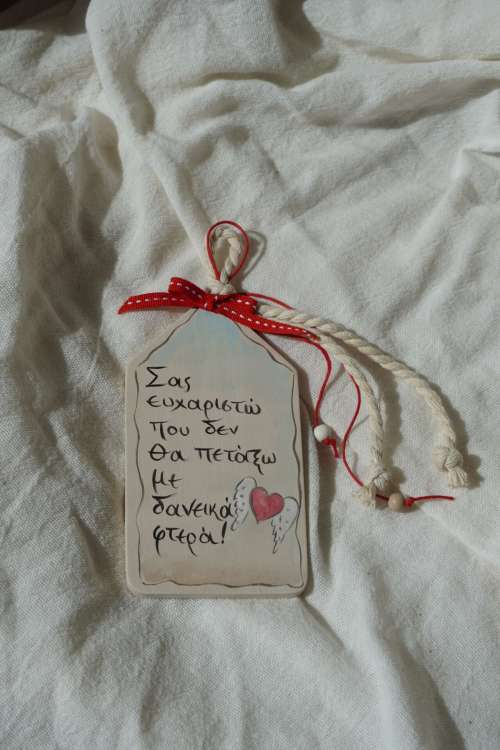 Σας
ευχαριστώ
που δεν
θα πετάξω
με
δανεικά
φτερά!